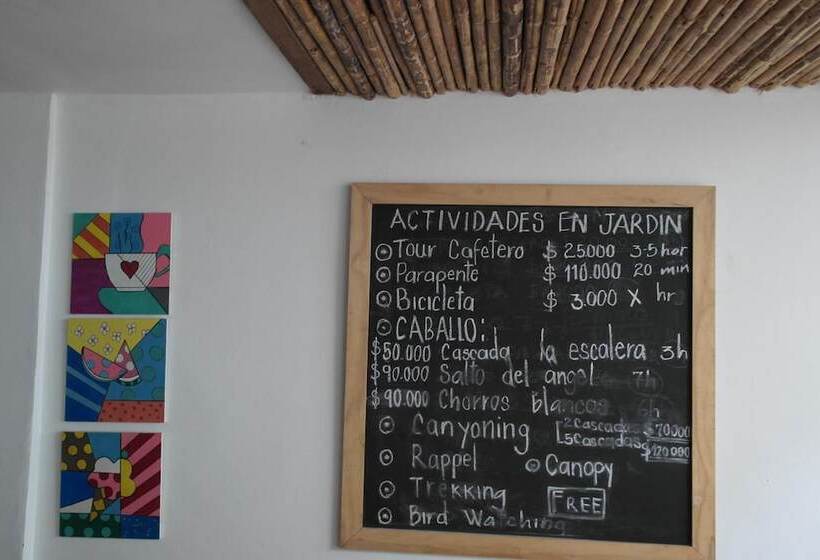 ACTIVIDADES EN JARDIN
Tour Cafetero $ 25.000 3-5 hor
Parapente $ 110.000 20 min
Bicicleta $ 3.000 X hr
CABALLO:
$50.000 Cascada la escalera 3h
$90.000 Salto del angel 7h
$90.000 Chorros blancos 6h
Canyoning [2 Cascadas $70000
5 Cascadas $120000
Rappel Canopy
Trekking FREE
Bird Watching